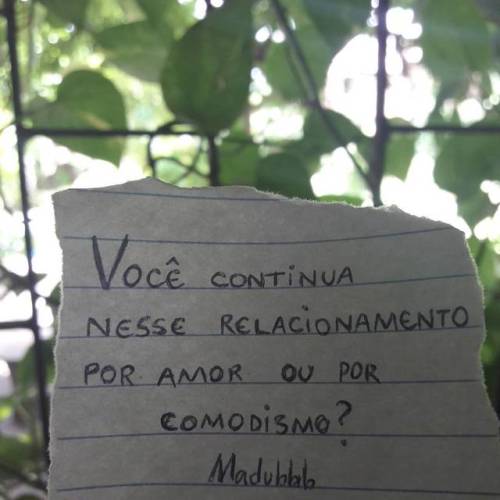 Você continua
nesse relacionamento
por amor ou por
comodismo?
Madubbb